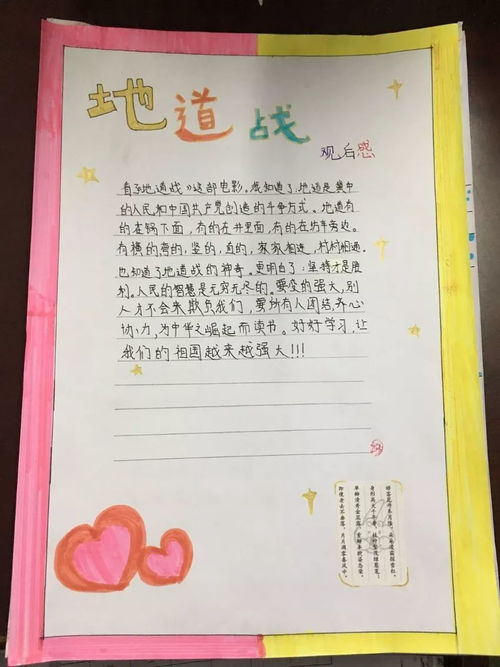 地道战
观后感
看了《地道战》这部电影。我知道了,地道是冀中
的人民和中国共产党创造的斗争方式。地道有
的在锅下面,有的在井里面,有的在坊车旁边。
有横的弯的,竖的,直的,家家相连,村村相通。
也知道了地道战的神奇。更明白了:坚持才是胜
利。人民的智慧是无穷无尽的。要变的强大,别
人才不会来欺负我们,要所有人团结,齐心
协力,为中华之崛起而读书。好好学习,让
我们的祖国越来越强大!!!